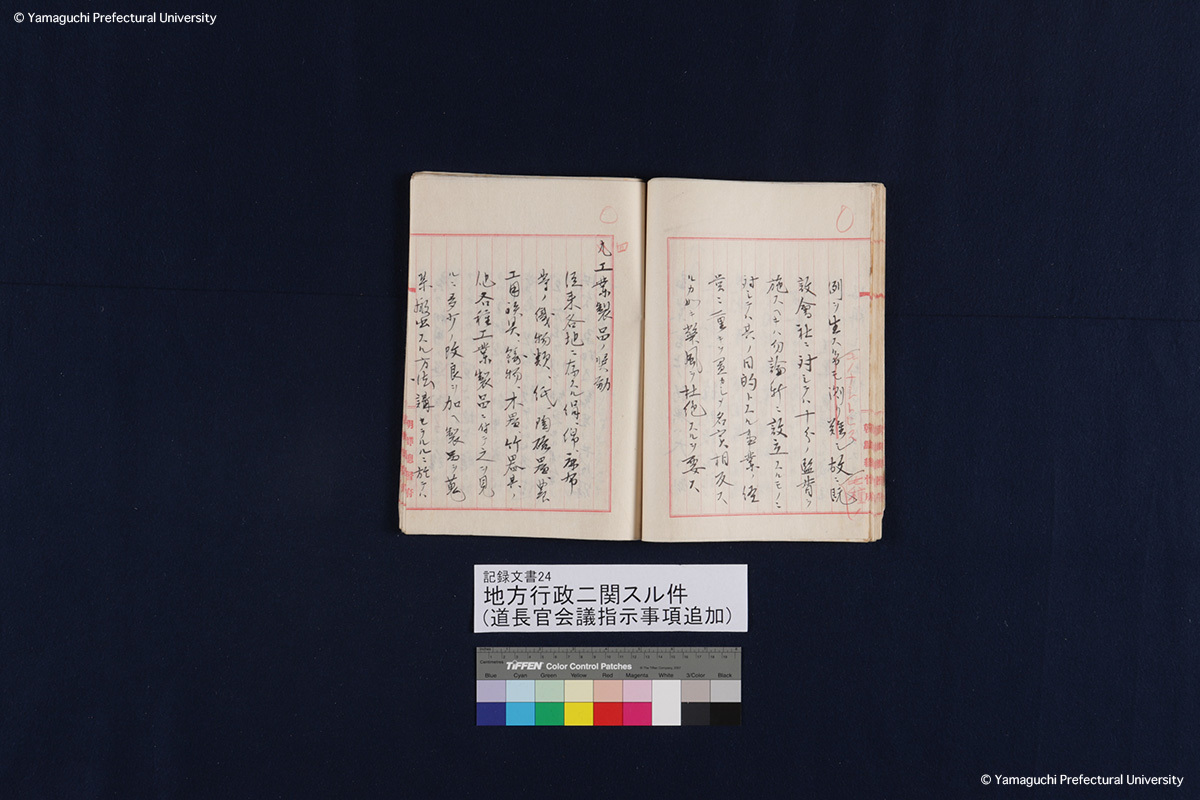 © Yamaguchi Prefectural University
例ヲ生スルナキヲ測リ難シ故ニ既
設會社ニ対シテハ十分ノ監督ヲ
施スヘキハ勿論新ニ設立スルモノニ
対シテハ其ノ目的トスル事業ノ経
営ニ重キヲ置カシメ名実相反ス
ルカ如キ弊風ヲ杜絶スルヲ要ス
工業製品ノ奨励
従来各地ニ産スル絹、綿、麻布
等ノ織物類、紙、陶磁器、農
工用鉄具、鋳物、木器、竹器其ノ
他各種工業製品ニ付テ之ヲ見
ルニ多少ノ改良ヲ加ヘ製品ヲ蒐
集搬出スル方法ヲ講セラルルニ於テハ
記録文書24
地方行政二関スル件
(道長官会議指示事項追加)
Centimetres
TIFFEN Color Control Patches
Blue Cyan Green Yellow Red Magenta White 3/Color Black
© Yamaguchi Prefectural University